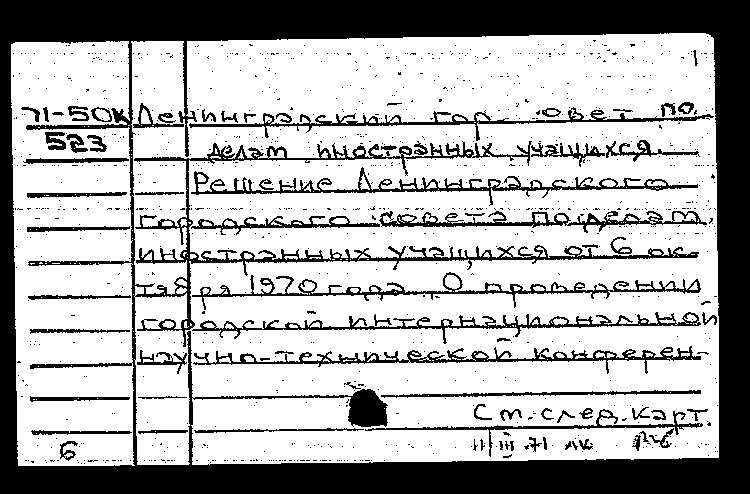 1
71-50к Ленинградский гор. совет по
523 делам иностранных учащихся.
Решение Ленинградского
городского совета по делам
иностранных учащихся от 6 ок-
тября 1970 года „О проведении
городской интернациональной
научно-технической конферен-
См. след. карт.
6 11/III 71